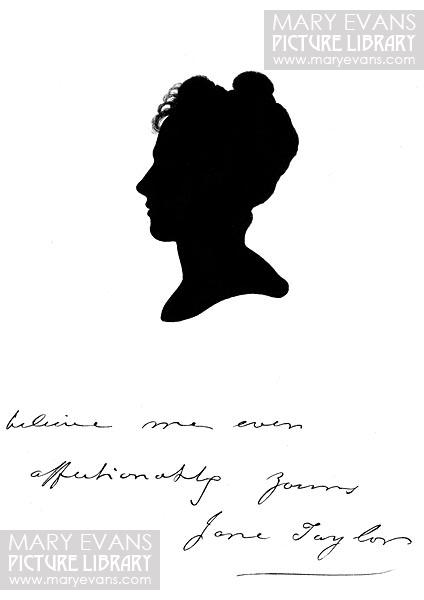 MARY EVANS
PICTURE LIBRARY
www.maryevans.com
believe me ever
affectionately yours
Jane Taylor
MARY EVANS
PICTURE LIBRARY
www.maryevans.com